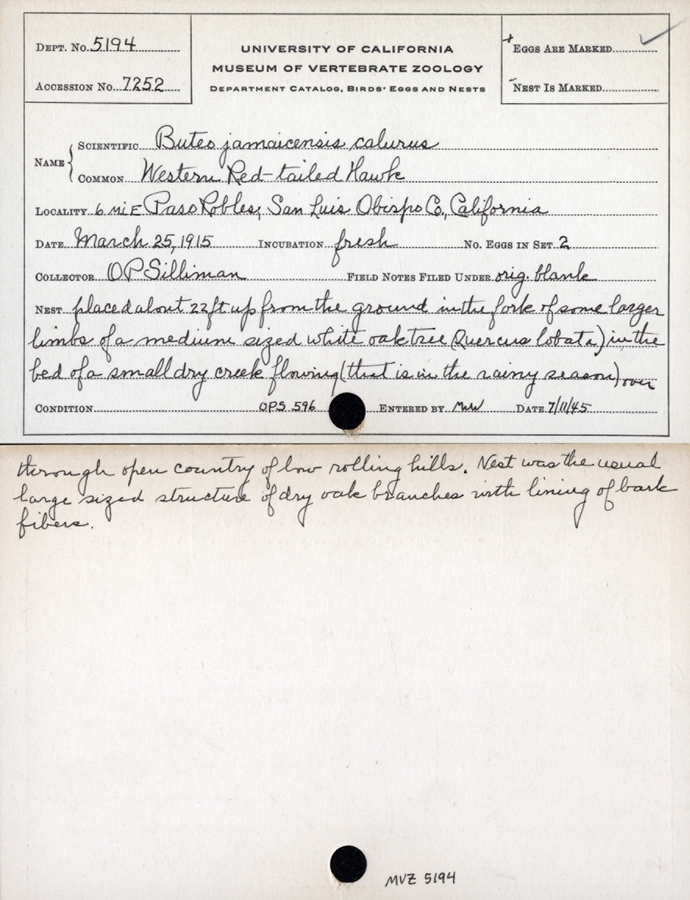 DEPT. No. 5194
ACCESSION No. 7252
UNIVERSITY OF CALIFORNIA
MUSEUM OF VERTEBRATE ZOOLOGY
DEPARTMENT CATALOG, BIRDS' EGGS AND NESTS
+ EGGS ARE MARKED ✓
- NEST IS MARKED
NAME { SCIENTIFIC Buteo jamaicensis calurus
COMMON Western Red-tailed Hawk
LOCALITY 6 mi E Paso Robles, San Luis Obispo Co., California
DATE March 25, 1915 INCUBATION fresh No. EGGS IN SET 2
COLLECTOR O P Silliman FIELD NOTES FILED UNDER orig. blank
NEST placed about 22 ft up from the ground in the fork of some larger
limbs of a medium sized white oak tree (Quercus lobata) in the
bed of a small dry creek flowing (that is in the rainy season) over
CONDITION OPS 596 ENTERED BY MWW DATE 7/11/45
through open country of low rolling hills. Nest was the usual
large sized structure of dry oak branches with lining of bark
fibers.
MVZ 5194